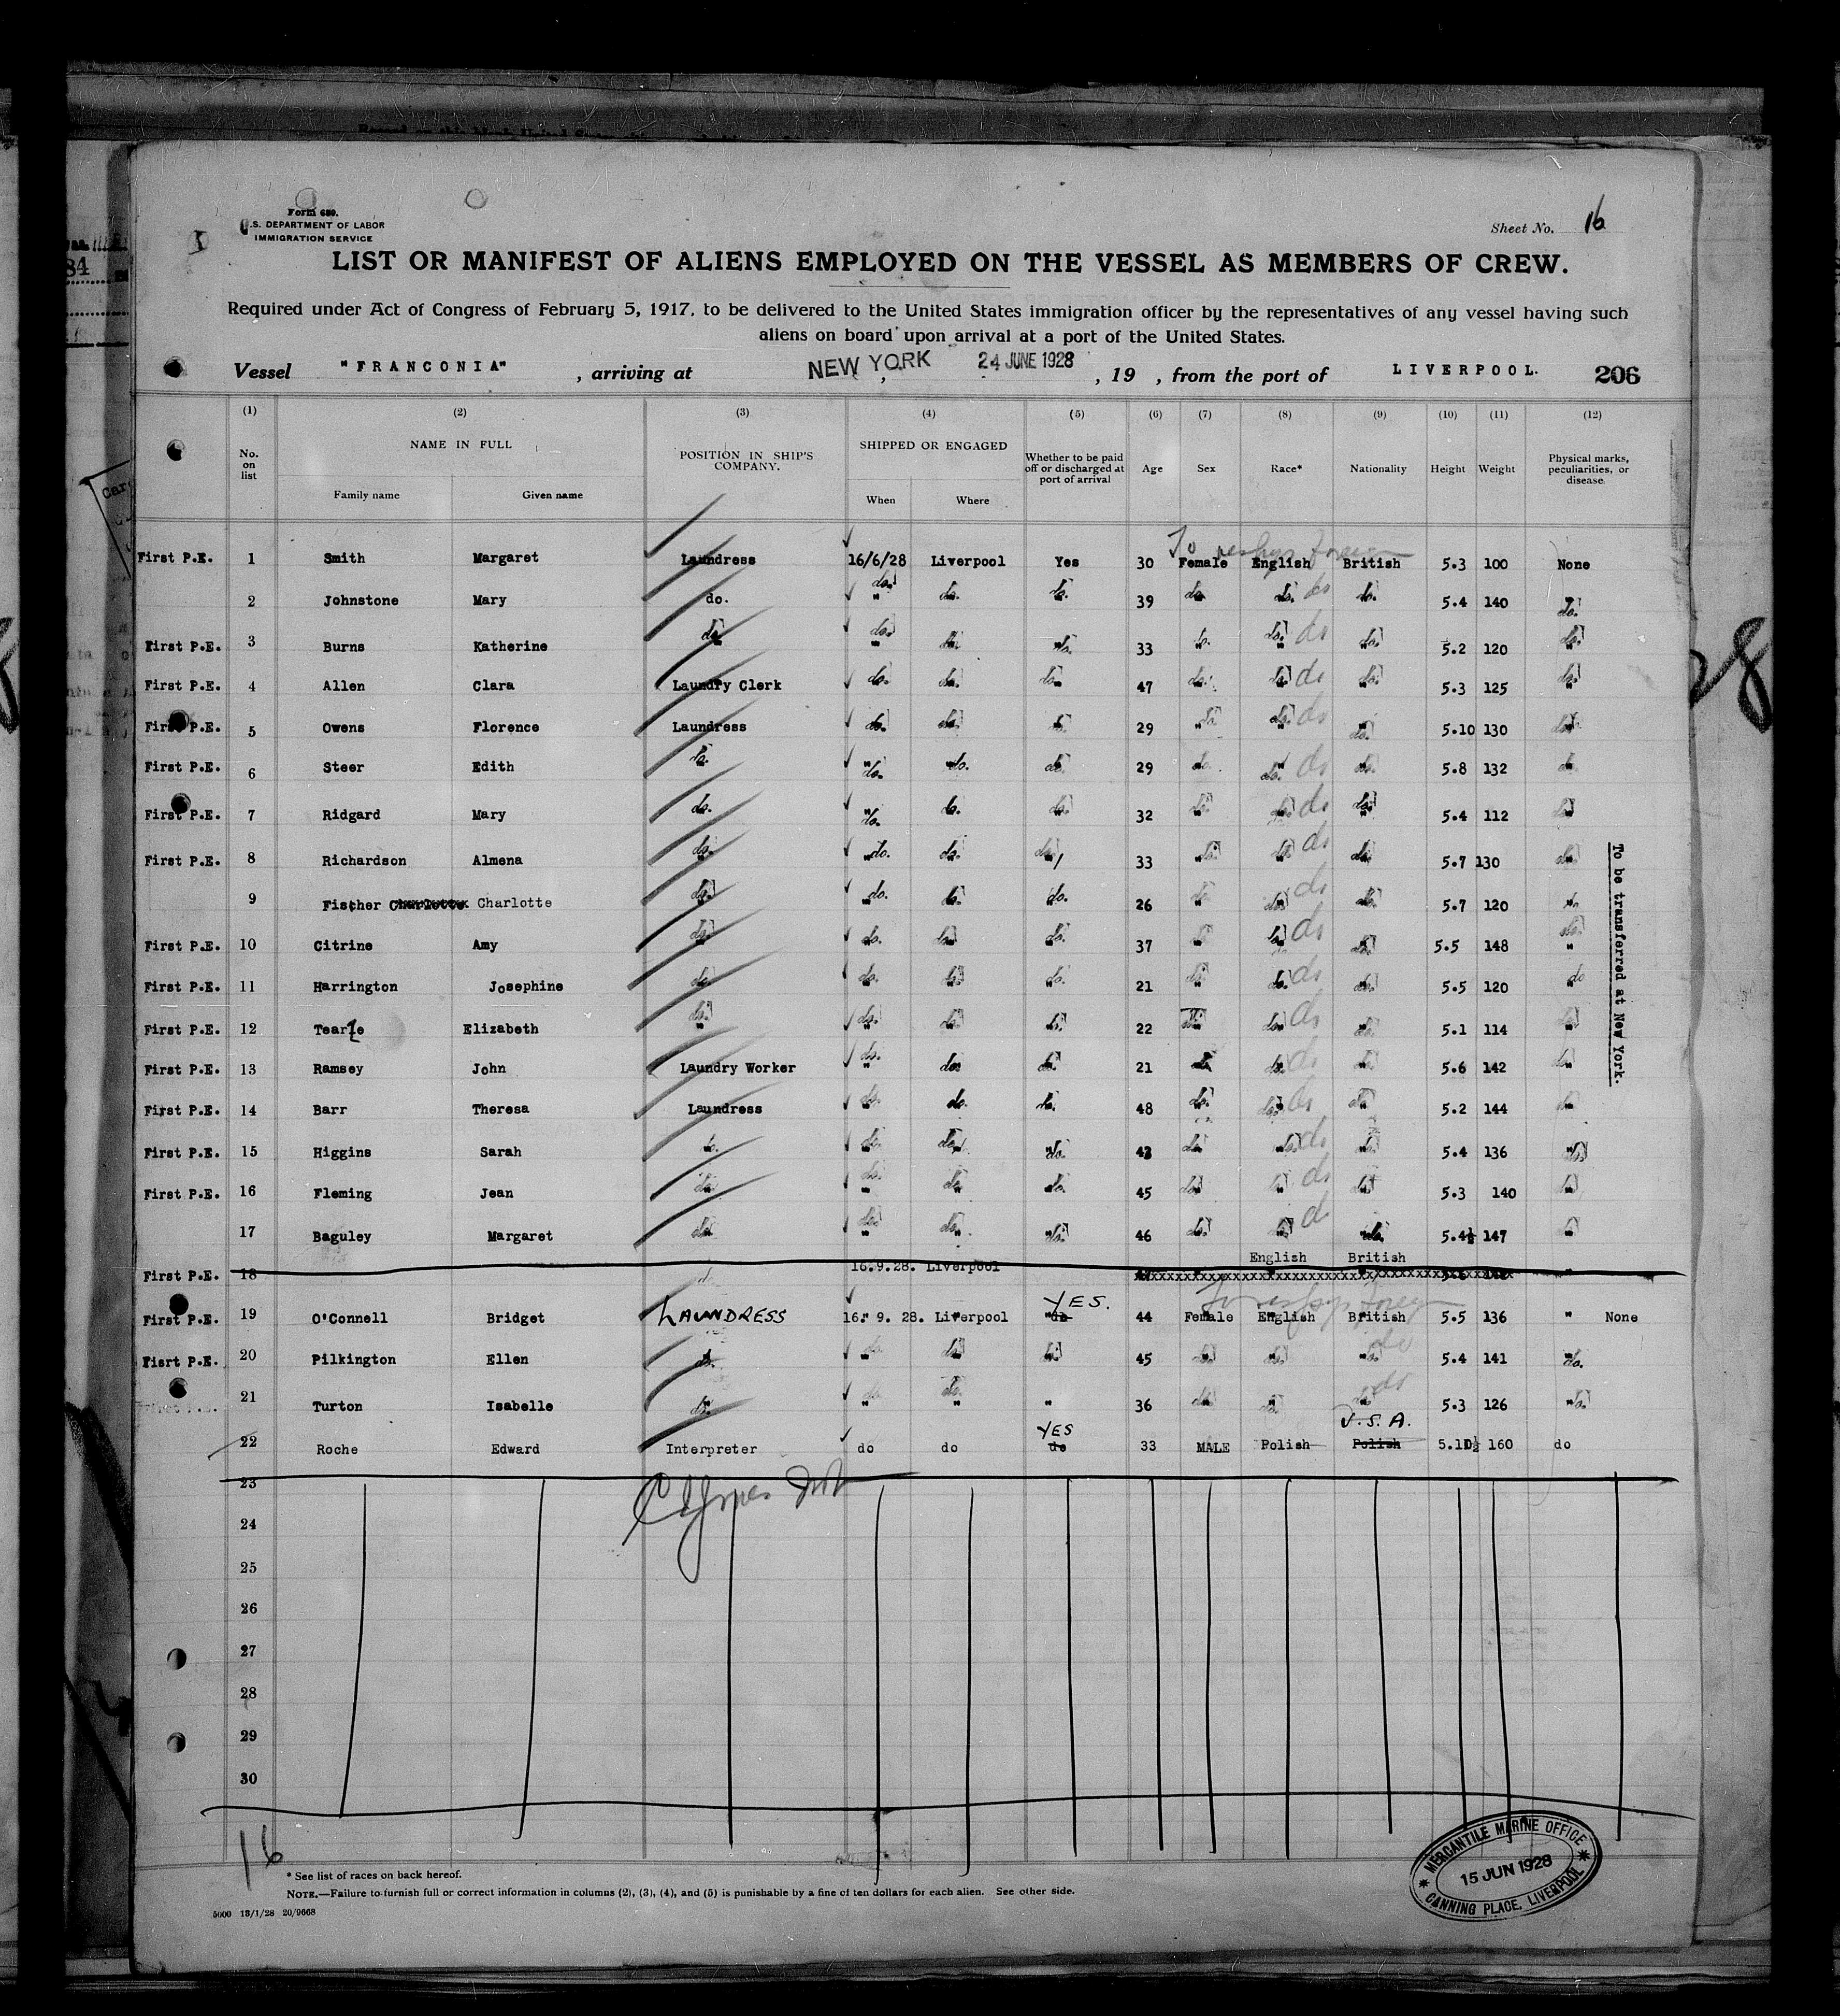 Form 680.
U.S. DEPARTMENT OF LABOR
IMMIGRATION SERVICE
Sheet No. 16
LIST OR MANIFEST OF ALIENS EMPLOYED ON THE VESSEL AS MEMBERS OF CREW.
Required under Act of Congress of February 5, 1917, to be delivered to the United States immigration officer by the representatives of any vessel having such
aliens on board upon arrival at a port of the United States.
Vessel "FRANCONIA", arriving at NEW YORK, 24 JUNE 1928, 19 , from the port of LIVERPOOL. 206
(1) (2) (3) (4) (5) (6) (7) (8) (9) (10) (11) (12)
No. on list NAME IN FULL POSITION IN SHIP'S COMPANY. SHIPPED OR ENGAGED Whether to be paid off or discharged at port of arrival Age Sex Race* Nationality Height Weight Physical marks, peculiarities, or disease.
Family name Given name When Where
First P.E. 1 Smith Margaret Laundress 16/6/28 Liverpool Yes 30 Female English British 5.3 100 None
2 Johnstone Mary do. do. do. do. 39 do. do. do do. 5.4 140 do.
First P.E. 3 Burns Katherine do. do. do. do. 33 do. do. do do. 5.2 120 do.
First P.E. 4 Allen Clara Laundry Clerk do. do. do. 47 do. do. do do. 5.3 125 do.
First P.E. 5 Owens Florence Laundress do. do. do. 29 do. do. do do. 5.10 130 do.
First P.E. 6 Steer Edith do. do. do. do. 29 do. do. do do. 5.8 132 do.
First P.E. 7 Ridgard Mary do. do. do. do. 32 do. do. do do. 5.4 112 do.
First P.E. 8 Richardson Almena do. do. do. do. 33 do. do. do do. 5.7 130 do.
9 Fischer Charlotte Charlotte do. do. do. do. 26 do. do. do do. 5.7 120 do.
First P.E. 10 Citrine Amy do. do. do. do. 37 do. do. do do. 5.5 148 do.
First P.E. 11 Harrington Josephine do. do. do. do. 21 do. do. do do. 5.5 120 do
First P.E. 12 Tearle Elizabeth do. do. do. do. 22 do. do. do do. 5.1 114 do.
First P.E. 13 Ramsey John Laundry Worker do. do. do. 21 do. do do. 5.6 142 do.
First P.E. 14 Barr Theresa Laundress do. do. do. 48 do. do. do do. 5.2 144 do.
First P.E. 15 Higgins Sarah do. do. do. do. 43 do. do. do do. 5.4 136 do.
First P.E. 16 Fleming Jean do. do. do. do. 45 do. do. do do. 5.3 140 do.
17 Baguley Margaret do. do. do. do. 46 do. do. do do. 5.4½ 147 do.
English British
First P.E. 18 16.9.28. Liverpool
First P.E. 19 O'Connell Bridget LAUNDRESS 16. 9. 28. Liverpool YES. do 44 Female English British 5.5 136 " None
Fisrt P.E. 20 Pilkington Ellen do. do. do. do. 45 do. do. do. 5.4 141 do.
21 Turton Isabelle do. do. do. " 36 do. do. do. 5.3 126 do.
22 Roche Edward Interpreter do do YES do 33 MALE Polish U.S.A. Polish 5.10½ 160 do
23
24
25
26
27
28
29
30
To be transferred at New York.
16
* See list of races on back hereof.
NOTE.—Failure to furnish full or correct information in columns (2), (3), (4), and (5) is punishable by a fine of ten dollars for each alien. See other side.
5000 13/1/28 20/9668
MERCANTILE MARINE OFFICE
15 JUN 1928
CANNING PLACE, LIVERPOOL